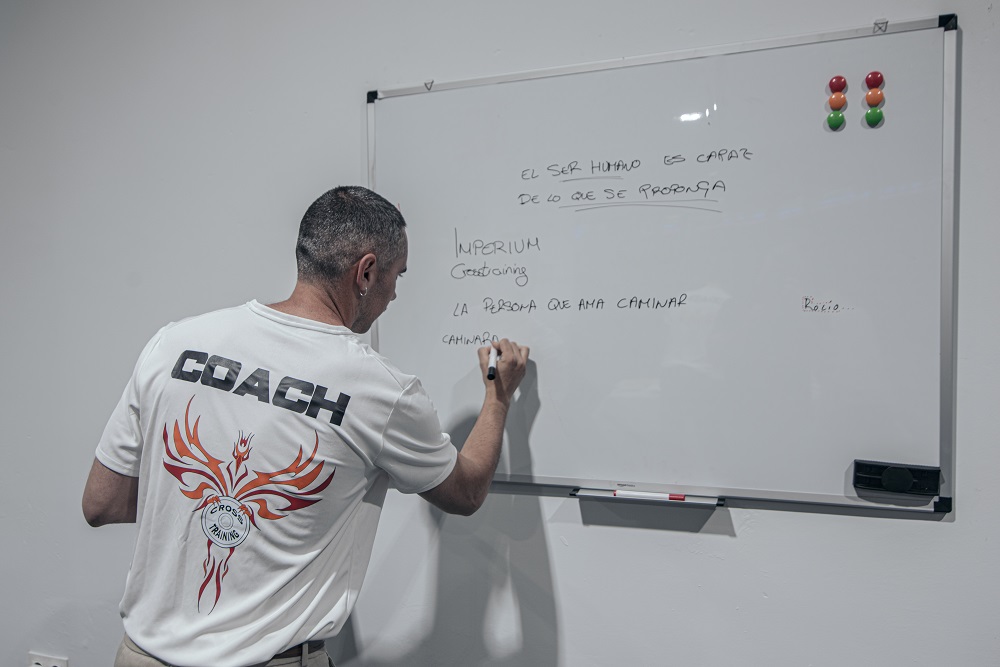 EL SER HUMANO ES CAPAZ
DE LO QUE SE PROPONGA
IMPERIUM
Crosstraining
LA PERSONA QUE AMA CAMINAR
Rocio...
CAMINARA
COACH
CROSS
TRAINING